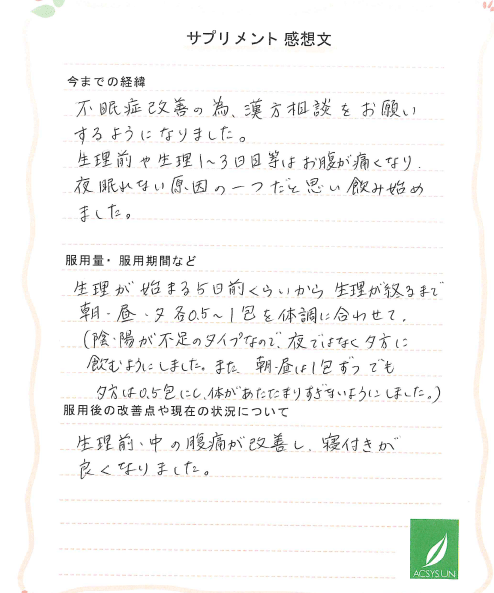 サプリメント 感想文
今までの経緯
不眠症改善の為、漢方相談をお願い
するようになりました。
生理前や生理1〜3日目等はお腹が痛くなり、
夜眠れない原因の一つだと思い飲み始め
ました。
服用量・服用期間など
生理が始まる5日前くらいから生理が終るまで
朝・昼・夕各0.5〜1包を体調に合わせて。
(陰・陽が不足のタイプなので、夜ではなく夕方に
飲むようにしました。また、朝・昼は1包ずつでも
夕方は0.5包にし、体があたたまりすぎないようにしました。)
服用後の改善点や現在の状況について
生理前・中の腹痛が改善し、寝付きが
良くなりました。
ACSYSUN